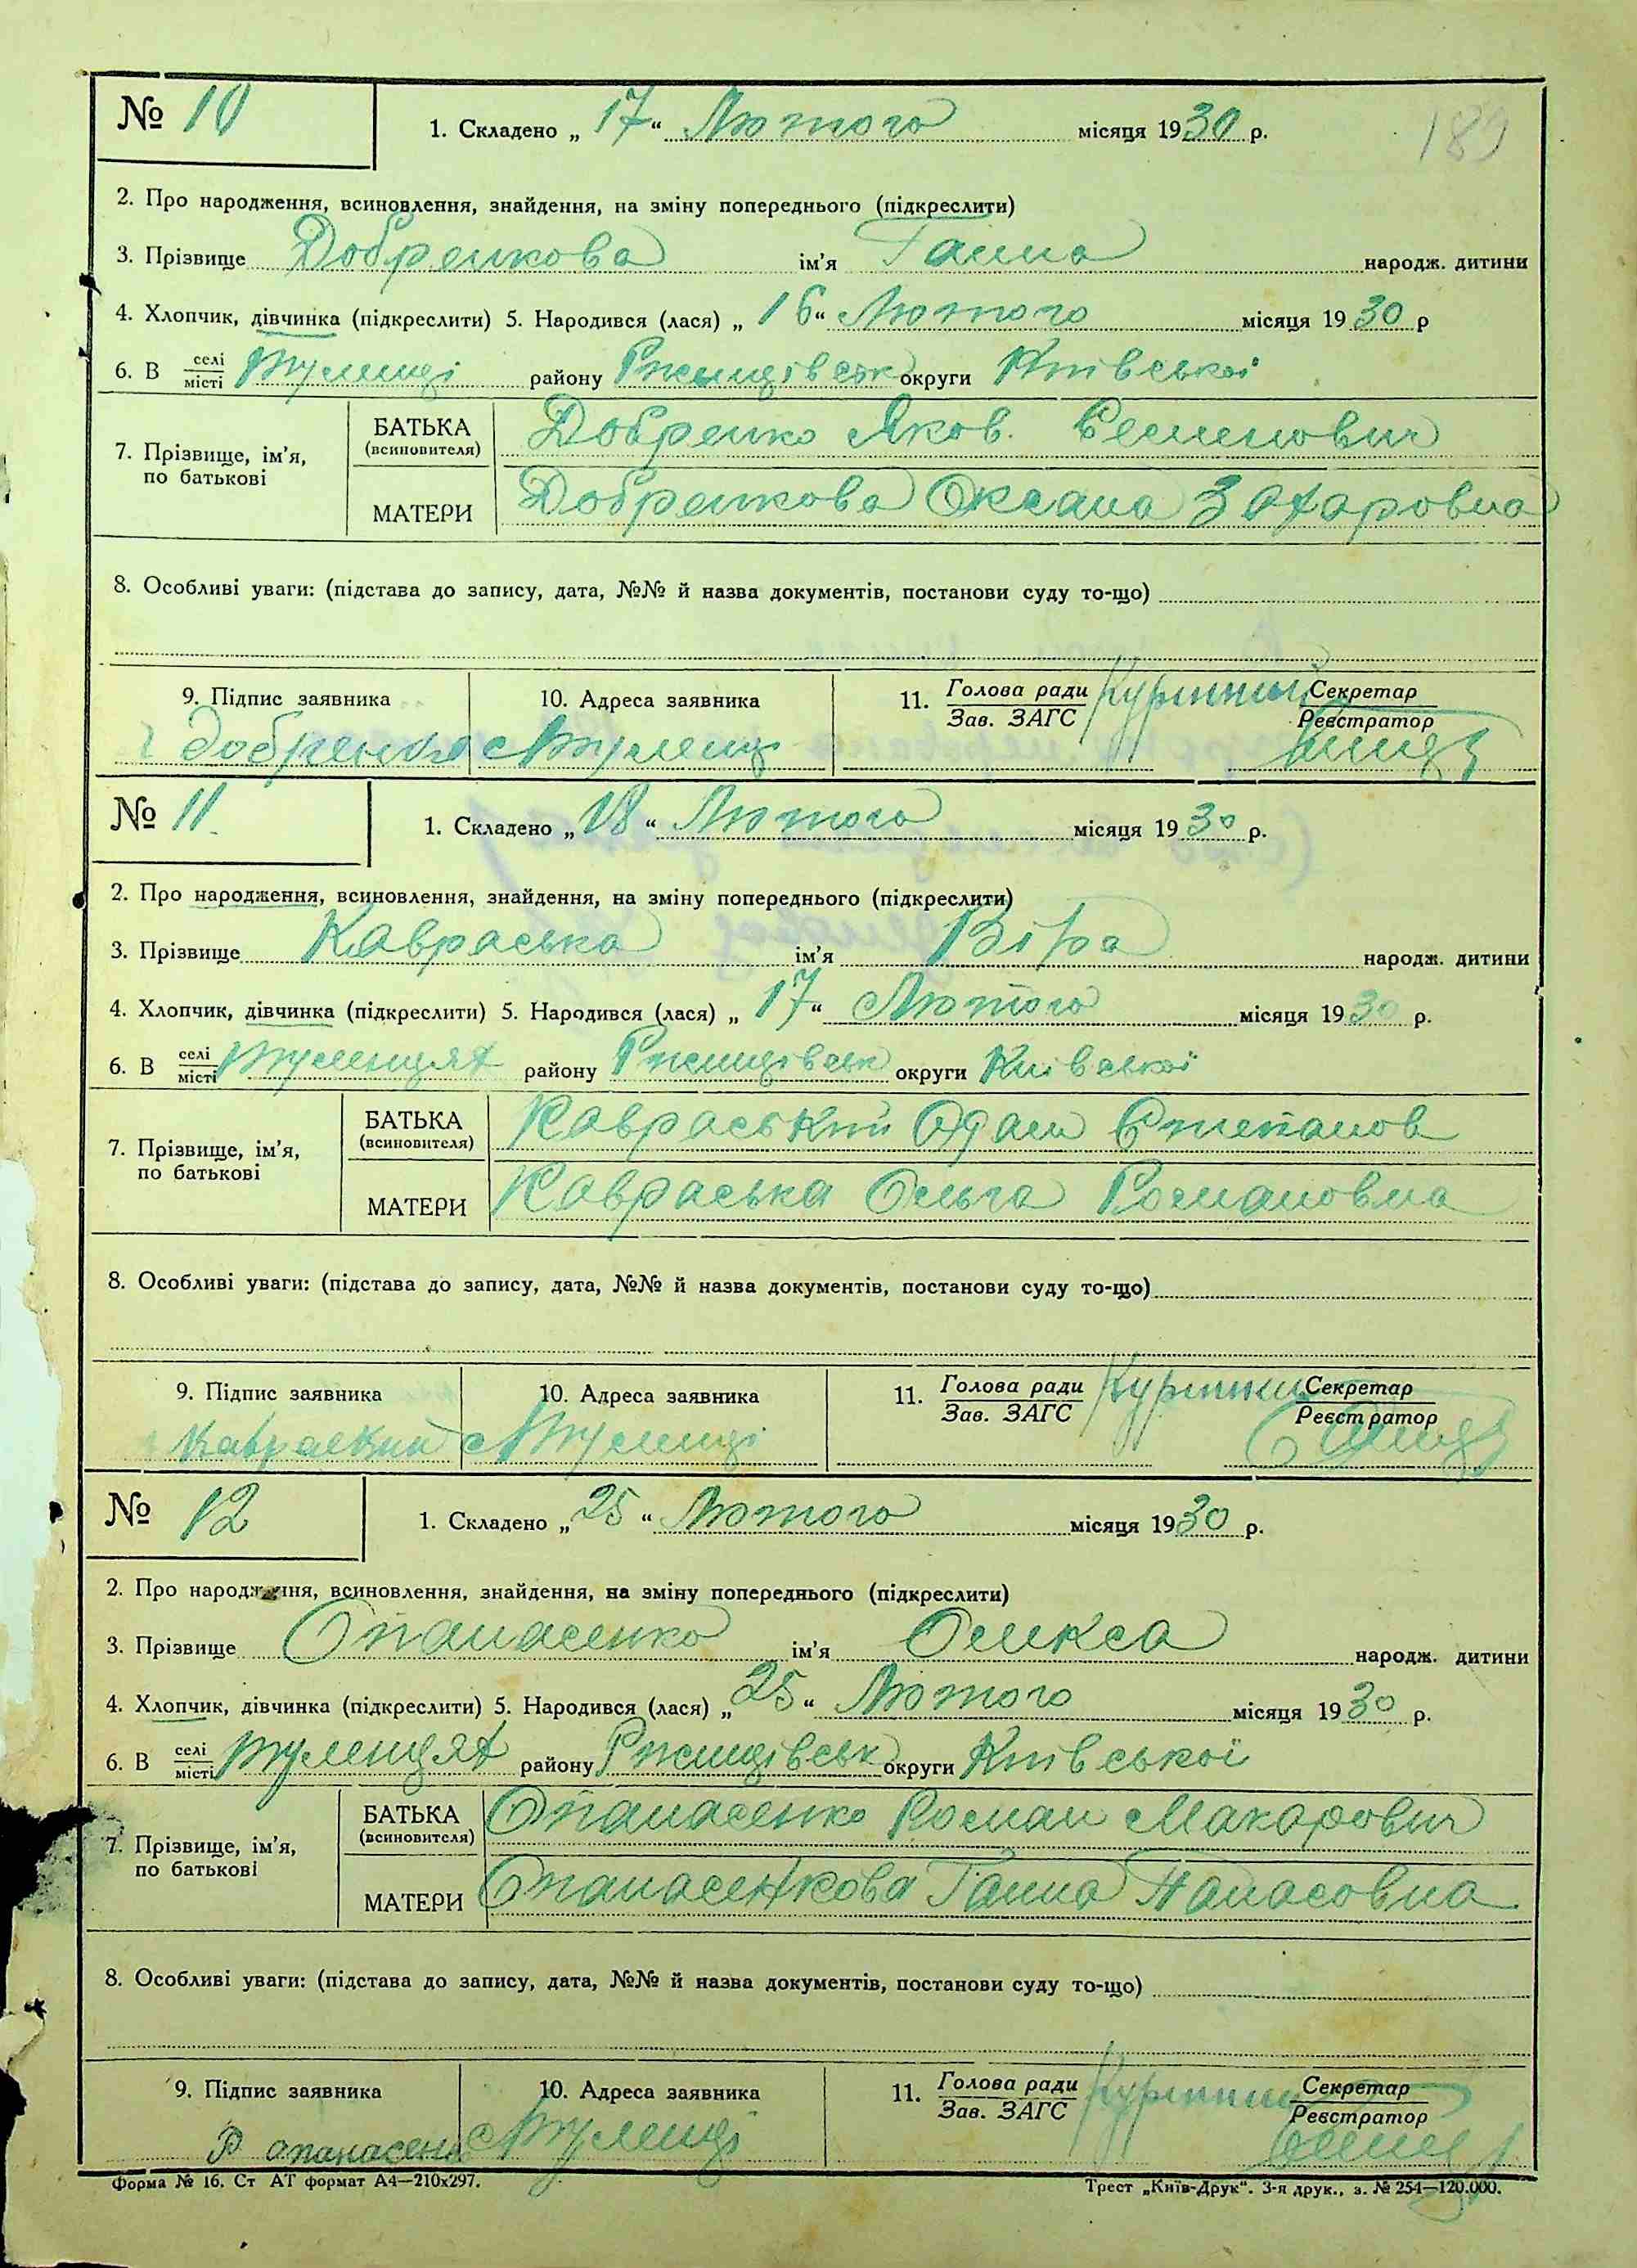 № 10
1. Складено „ 17 “ Лютого місяця 1930 р.
189
2. Про народження, всиновлення, знайдення, на зміну попереднього (підкреслити)
3. Прізвище Добренкова ім'я Ганна народж. дитини
4. Хлопчик, дівчинка (підкреслити) 5. Народився (лася) „ 16 “ Лютого місяця 1930 р
6. В селі/місті Туленці району Ржищівськ округи Київської
7. Прізвище, ім'я, по батькові
БАТЬКА (всиновителя) Добренко Яков. Семенович
МАТЕРИ Добренкова Оксана Захаровна
8. Особливі уваги: (підстава до запису, дата, №№ й назва документів, постанови суду то-що)
9. Підпис заявника 10. Адреса заявника 11. Голова ради Секретар
Зав. ЗАГС Реєстратор
Добренко с Туленці
№ 11.
1. Складено „ 18 “ Лютого місяця 1930 р.
2. Про народження, всиновлення, знайдення, на зміну попереднього (підкреслити)
3. Прізвище Кавраська ім'я Віра народж. дитини
4. Хлопчик, дівчинка (підкреслити) 5. Народився (лася) „ 17 “ Лютого місяця 1930 р.
6. В селі/місті Туленцях району Ржищівськ округи Київської
7. Прізвище, ім'я, по батькові
БАТЬКА (всиновителя) Кавраський Адам Степанов
МАТЕРИ Кавраська Ольга Романовна
8. Особливі уваги: (підстава до запису, дата, №№ й назва документів, постанови суду то-що)
9. Підпис заявника 10. Адреса заявника 11. Голова ради Секретар
Зав. ЗАГС Реєстратор
Кавраский с Туленці
№ 12
1. Складено „ 25 “ Лютого місяця 1930 р.
2. Про народження, всиновлення, знайдення, на зміну попереднього (підкреслити)
3. Прізвище Опанасенко ім'я Олекса народж. дитини
4. Хлопчик, дівчинка (підкреслити) 5. Народився (лася) „ 25 “ Лютого місяця 1930 р.
6. В селі/місті Туленцях району Ржищівськ округи Київської
7. Прізвище, ім'я, по батькові
БАТЬКА (всиновителя) Опанасенко Роман Макарович
МАТЕРИ Опанасенкова Ганна Панасовна
8. Особливі уваги: (підстава до запису, дата, №№ й назва документів, постанови суду то-що)
9. Підпис заявника 10. Адреса заявника 11. Голова ради Секретар
Зав. ЗАГС Реєстратор
Р опанасенк с Туленці
Форма № 16. Ст АТ формат А4—210х297. Трест „Київ-Друк“. 3-я друк., з. № 254—120.000.